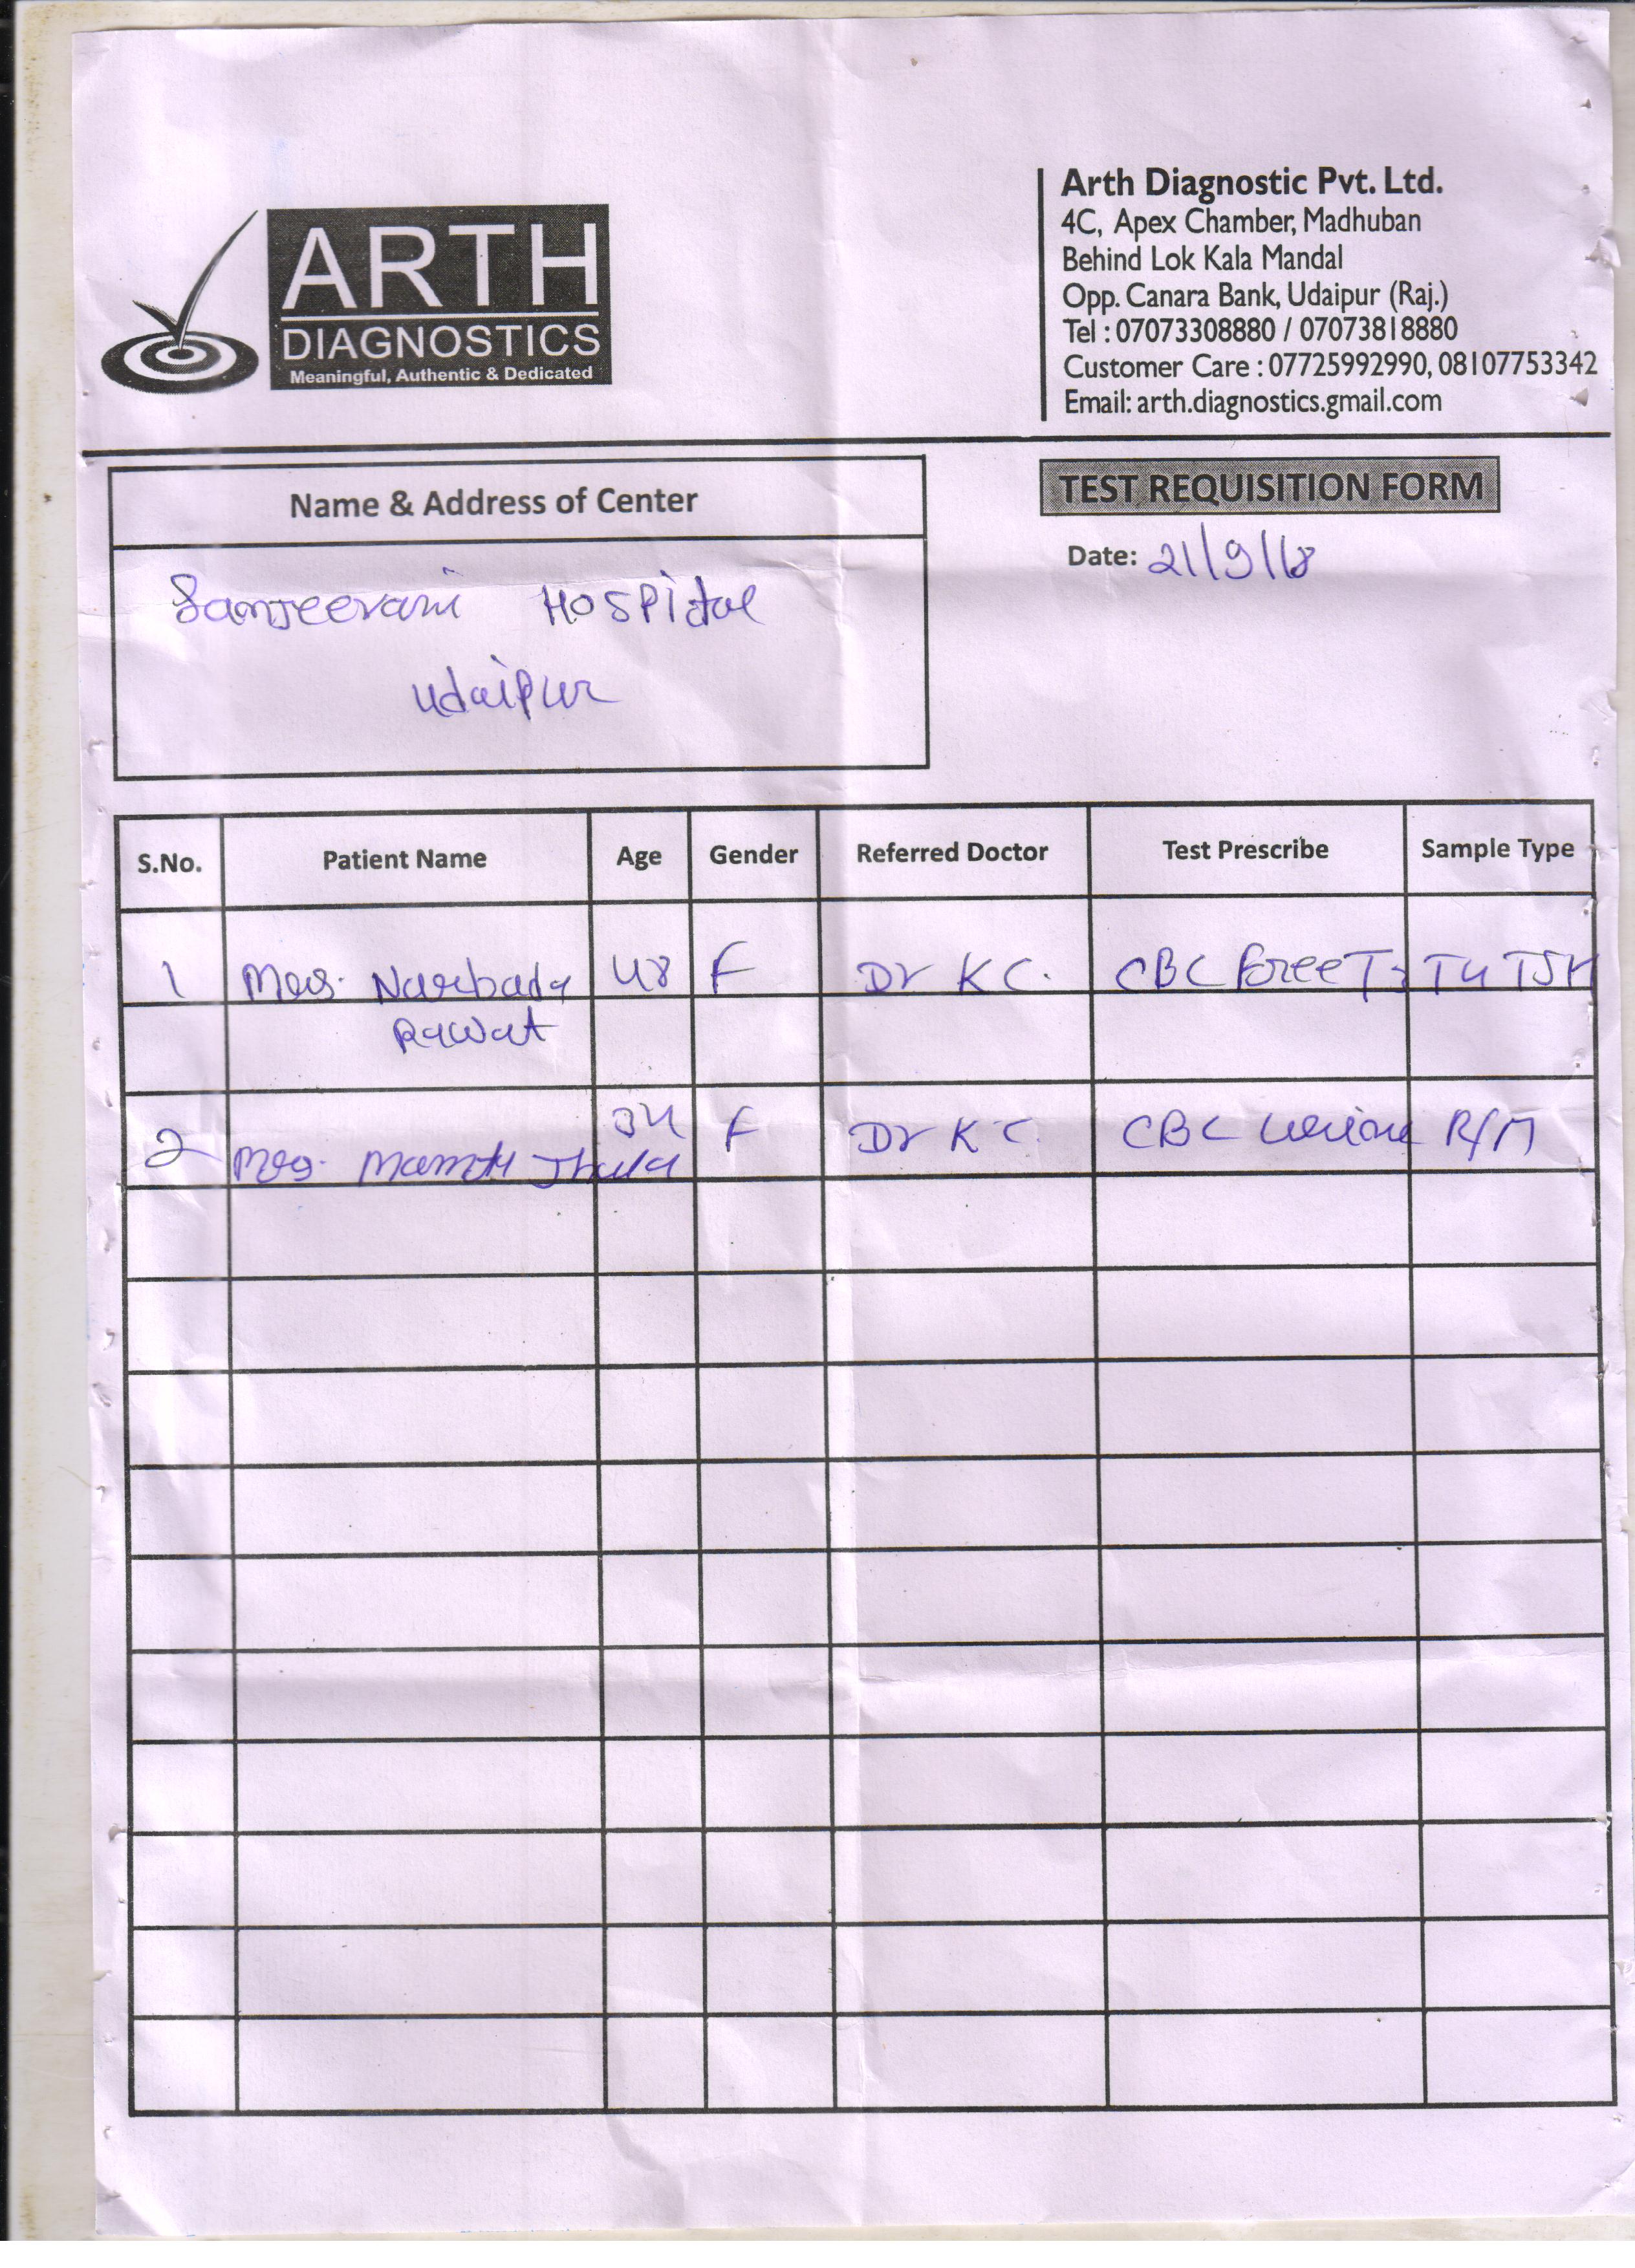 ARTH
DIAGNOSTICS
Meaningful, Authentic & Dedicated
Arth Diagnostic Pvt. Ltd.
4C, Apex Chamber, Madhuban
Behind Lok Kala Mandal
Opp. Canara Bank, Udaipur (Raj.)
Tel : 07073308880 / 07073818880
Customer Care : 07725992990, 08107753342
Email: arth.diagnostics.gmail.com
Name & Address of Center
Sanjeevani Hospital
Udaipur
TEST REQUISITION FORM
Date: 21/9/18
S.No. Patient Name Age Gender Referred Doctor Test Prescribe Sample Type
1 Mrs. Narbada 48 F Dr K C. CBC Free T3 T4 TSH
Rawat
2 Mrs. Mamta Jhala 34 F Dr K C. CBC Urine R/M